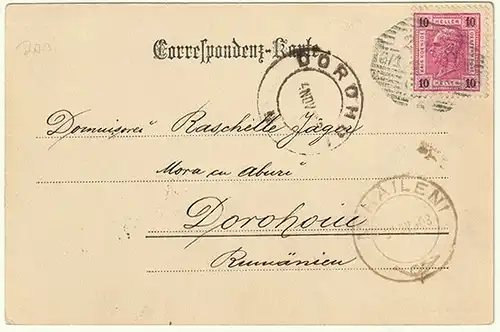 Correspondenz-Karte
10 HELLER 10
10 10
DOROHOI
4 NOV
Domnișorei Raschelle Jäger
Mora cu Aburi
MIHAILENI
Dorohoiu
Rumänien